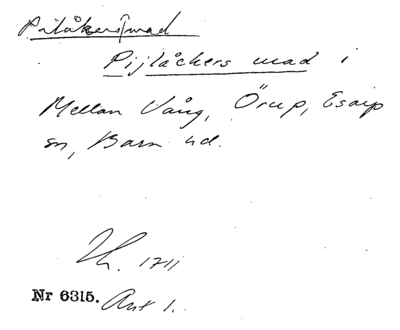 Pilåkersmad
Pijlåckers mad i
Mellan Vång, Örup, Esarp
sn, Bara hd.
Lh. 1711
Nr 6315. Akt 1.